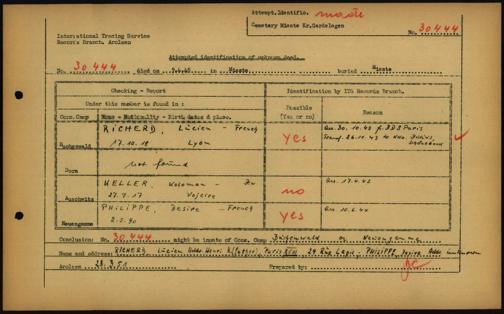 Attempt.Identific. made
Cemetery Mieste Kr.Gardelegen
No. 30444
International Tracing Service
Records Branch, Arolsen
Attempted identification of unknown dead.
No. 30444 died on in Mieste buried Mieste
Checking - Report
Identification by ITS Records Branch.
Under this number is found in :
Possible
(Yes or no)
Reason
Conc.Camp
Name - Nationality - Birth, dates & place.
RICHERD, Lucien - French
17.10.18 Lyon
Buchenwald
yes
Arr. 30.10.43 f. BDS Paris
Transf. 26.11.43 to Kdo.
Dora
not found
HELLER, - Hu
Auschwitz
27.7.17
no
Arr. 17.4.43
PHILIPPE, Desire - French
Neuengamme
2.2.90
yes
Arr. 10.6.44
Conclusion: No. 30444 might be inmate of Conc. Camp Buchenwald or Neuengamme
Name and address: RICHERD, Lucien Henri Paris 29 Rue - PHILIPPE, Desire unknown
Arolsen 28.3.51 Prepared by: